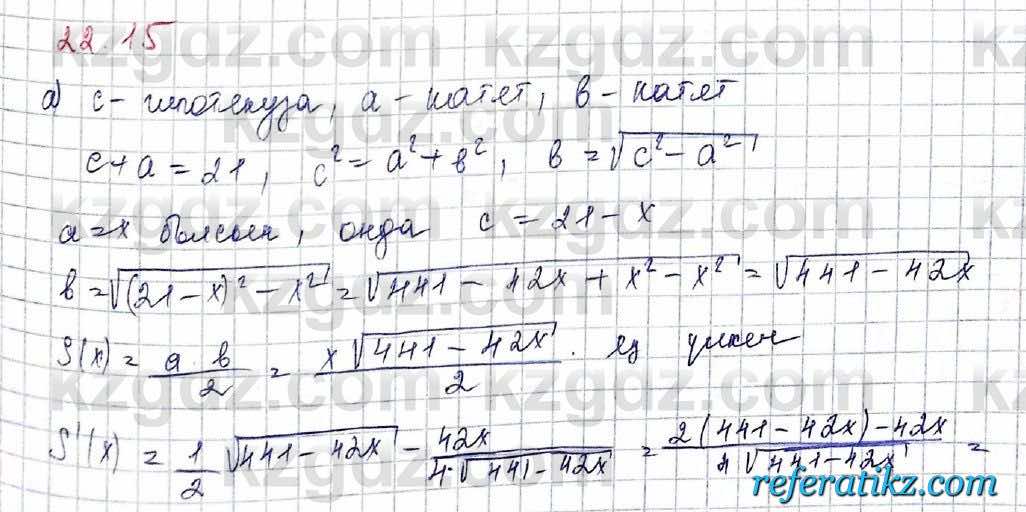 22.15
а) с - гипотенуза, а - катет, в - катет
с + а = 21, с² = а² + в², в = √(с² - а²)
а = х болсын, онда с = 21 - х
в = √((21 - х)² - х²) = √(441 - 42х + х² - х²) = √(441 - 42х)
S(x) = а в / 2 = х√(441 - 42х) / 2 . ең үлкен
S'(x) = 1/2 √(441 - 42х) - 42х / 4·√(441 - 42х) = 2(441 - 42х) - 42х / 4√(441 - 42х) =
kzgdz.com
referatikz.com